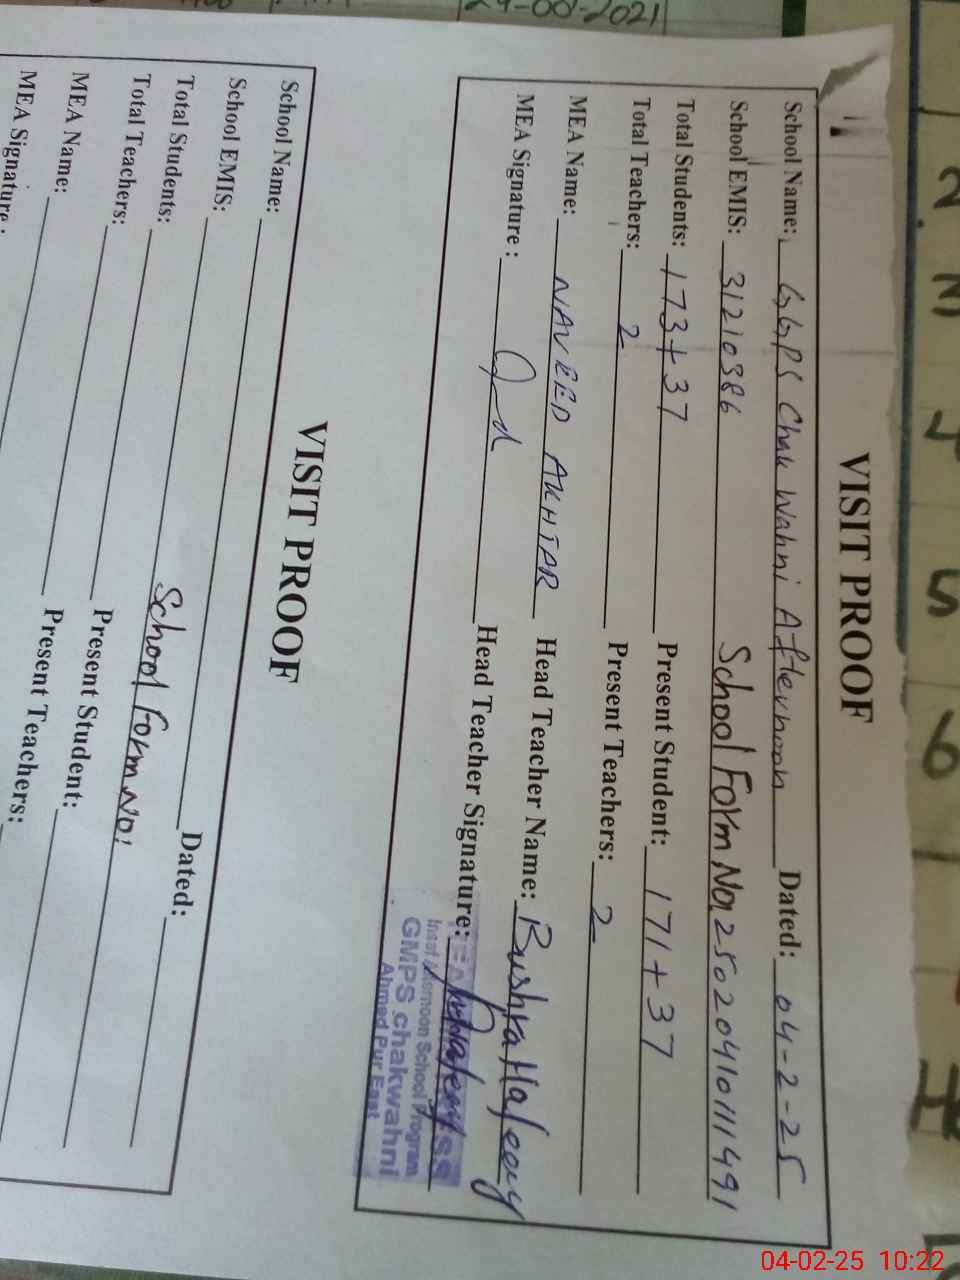 29-00-2021
VISIT PROOF
School Name: G,G,PS Chak Wahni Afternoon Dated: 04-2-25
School EMIS: 31210386 School Form No: 250204101111491
Total Students: 173+37 Present Student: 171+37
Total Teachers: 2 Present Teachers: 2
MEA Name: NAVEED AKHTAR Head Teacher Name: Bushra Hafeez
MEA Signature : Head Teacher Signature:
Insaf Afternoon School Program
GMPS chakwahni
Ahmed Pur East
VISIT PROOF
School Name: Dated:
School EMIS: School Form No:
Total Students: Present Student:
Total Teachers: Present Teachers:
MEA Name:
MEA Signature :
2
3
4
5
6
04-02-25 10:22